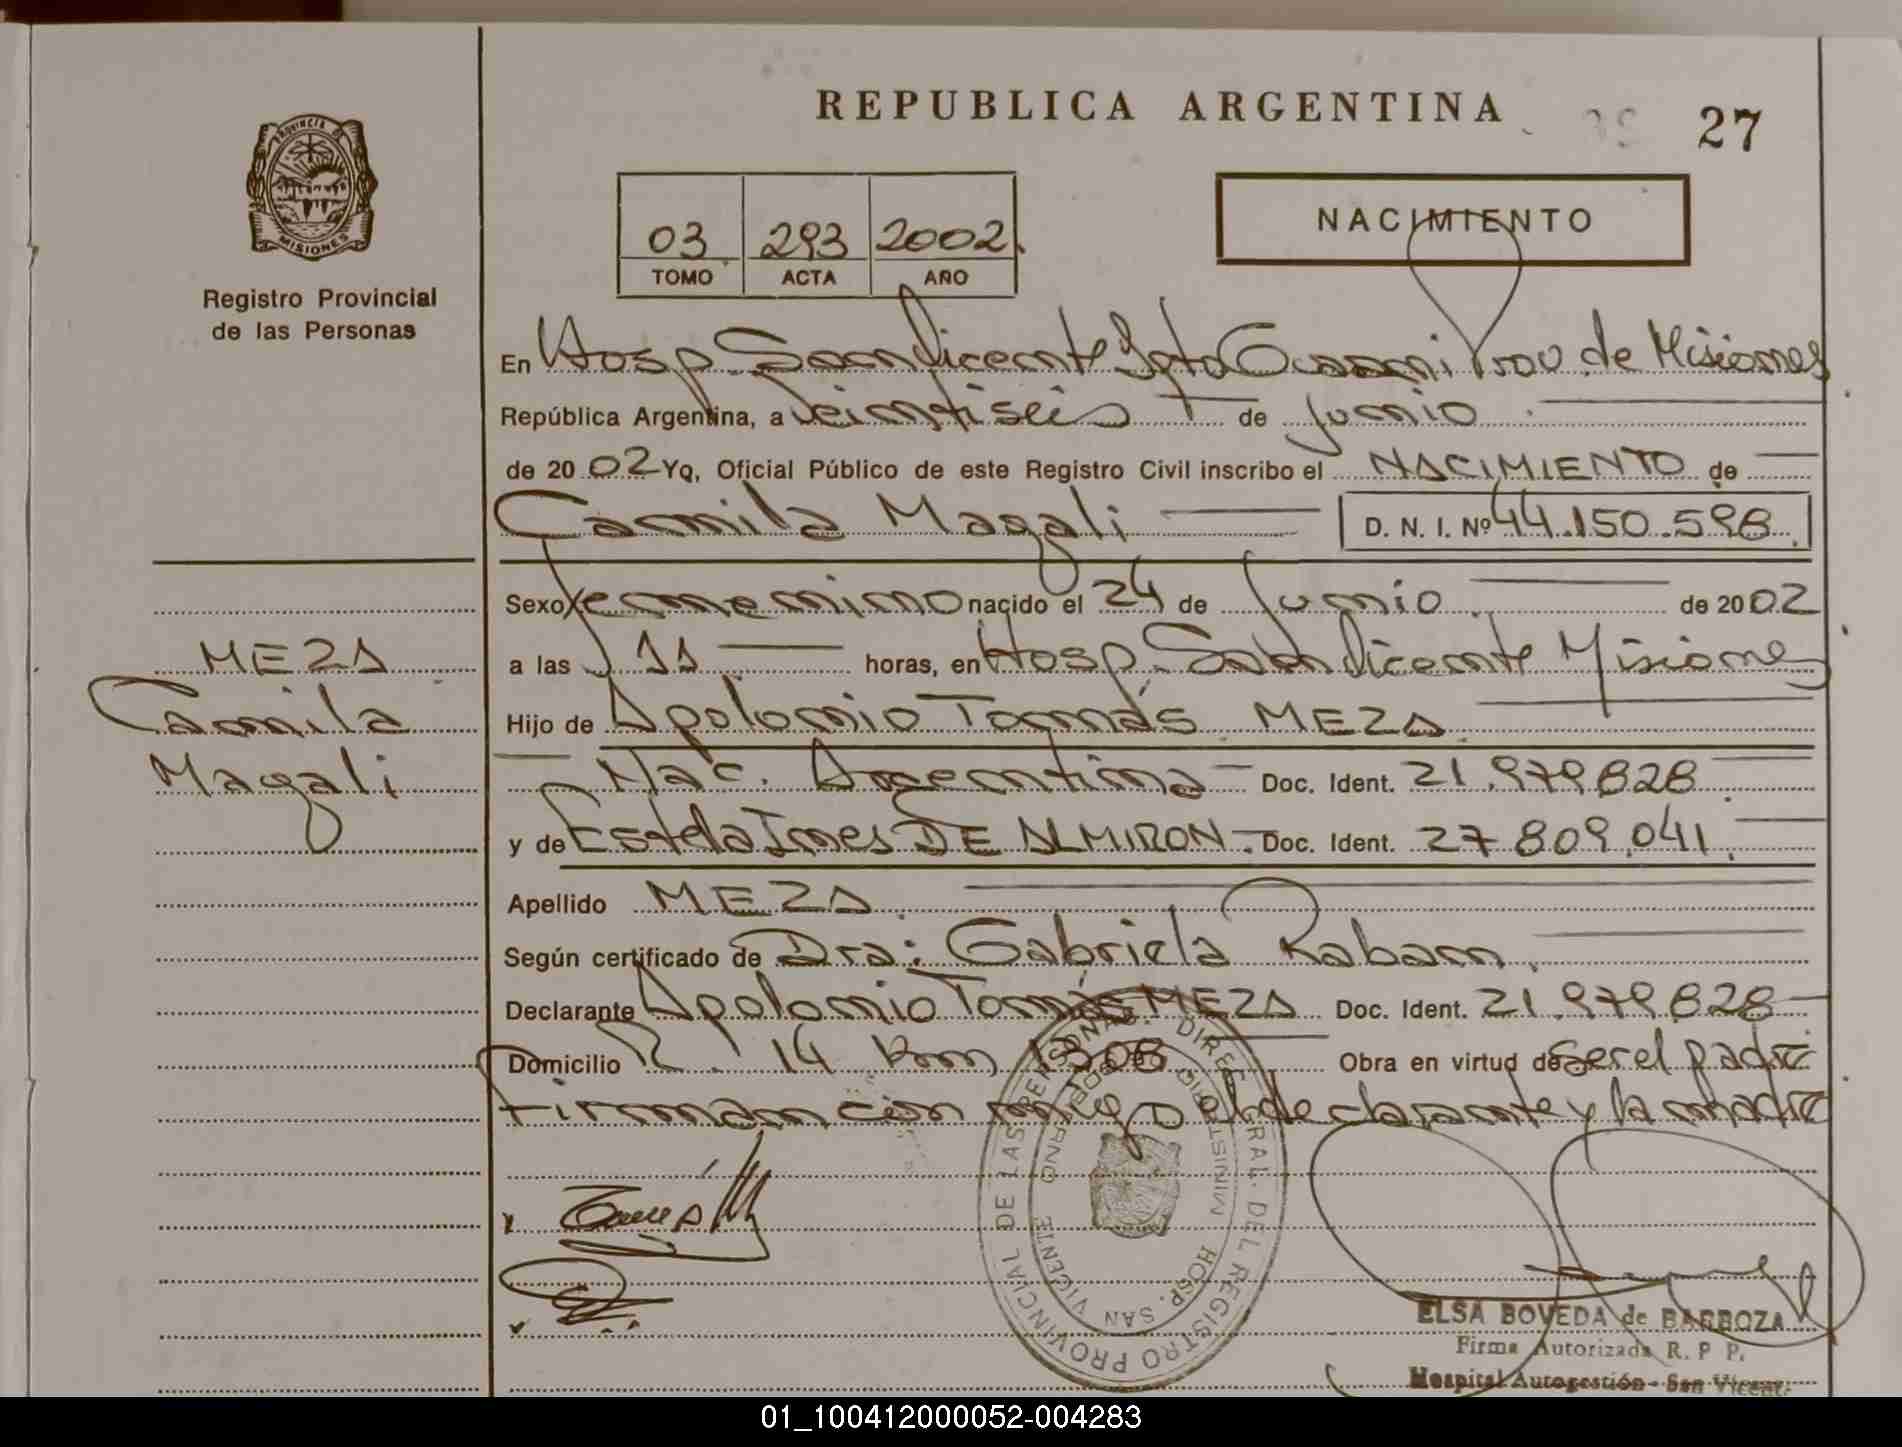 REPUBLICA ARGENTINA
27
PROVINCIA DE
MISIONES
Registro Provincial
de las Personas
03 293 2002
TOMO ACTA AÑO
NACIMIENTO
En Hosp. San Vicente Dpto Guaraní Prov. de Misiones
República Argentina, a Veintiséis de Junio
de 2002 Yo, Oficial Público de este Registro Civil inscribo el NACIMIENTO de
Camila Magali D. N. I. Nº 44.150.598
Sexo Femenino nacido el 24 de Junio de 2002
a las 11 horas, en Hosp. San Vicente Misiones
Hijo de Apolonio Tomás MEZA
Nac. Argentina Doc. Ident. 21.979.828
y de Estela Ines DE ALMIRON Doc. Ident. 27.809.041
Apellido MEZA
Según certificado de Dra: Gabriela Raban
Declarante Apolonio Tomás MEZA Doc. Ident. 21.979.828
Domicilio R. 14 Km 1308 Obra en virtud de Ser el padre
Firman con migo el declarante y la madre
MEZA
Camila
Magali
DIREC. GRAL. DEL REGISTRO PROVINCIAL DE LAS PERSONAS
HOSP. SAN VICENTE
ELSA BOVEDA de BARBOZA
Firma Autorizada R. P P.
Hospital Autogestión - San Vicente
01_100412000052-004283